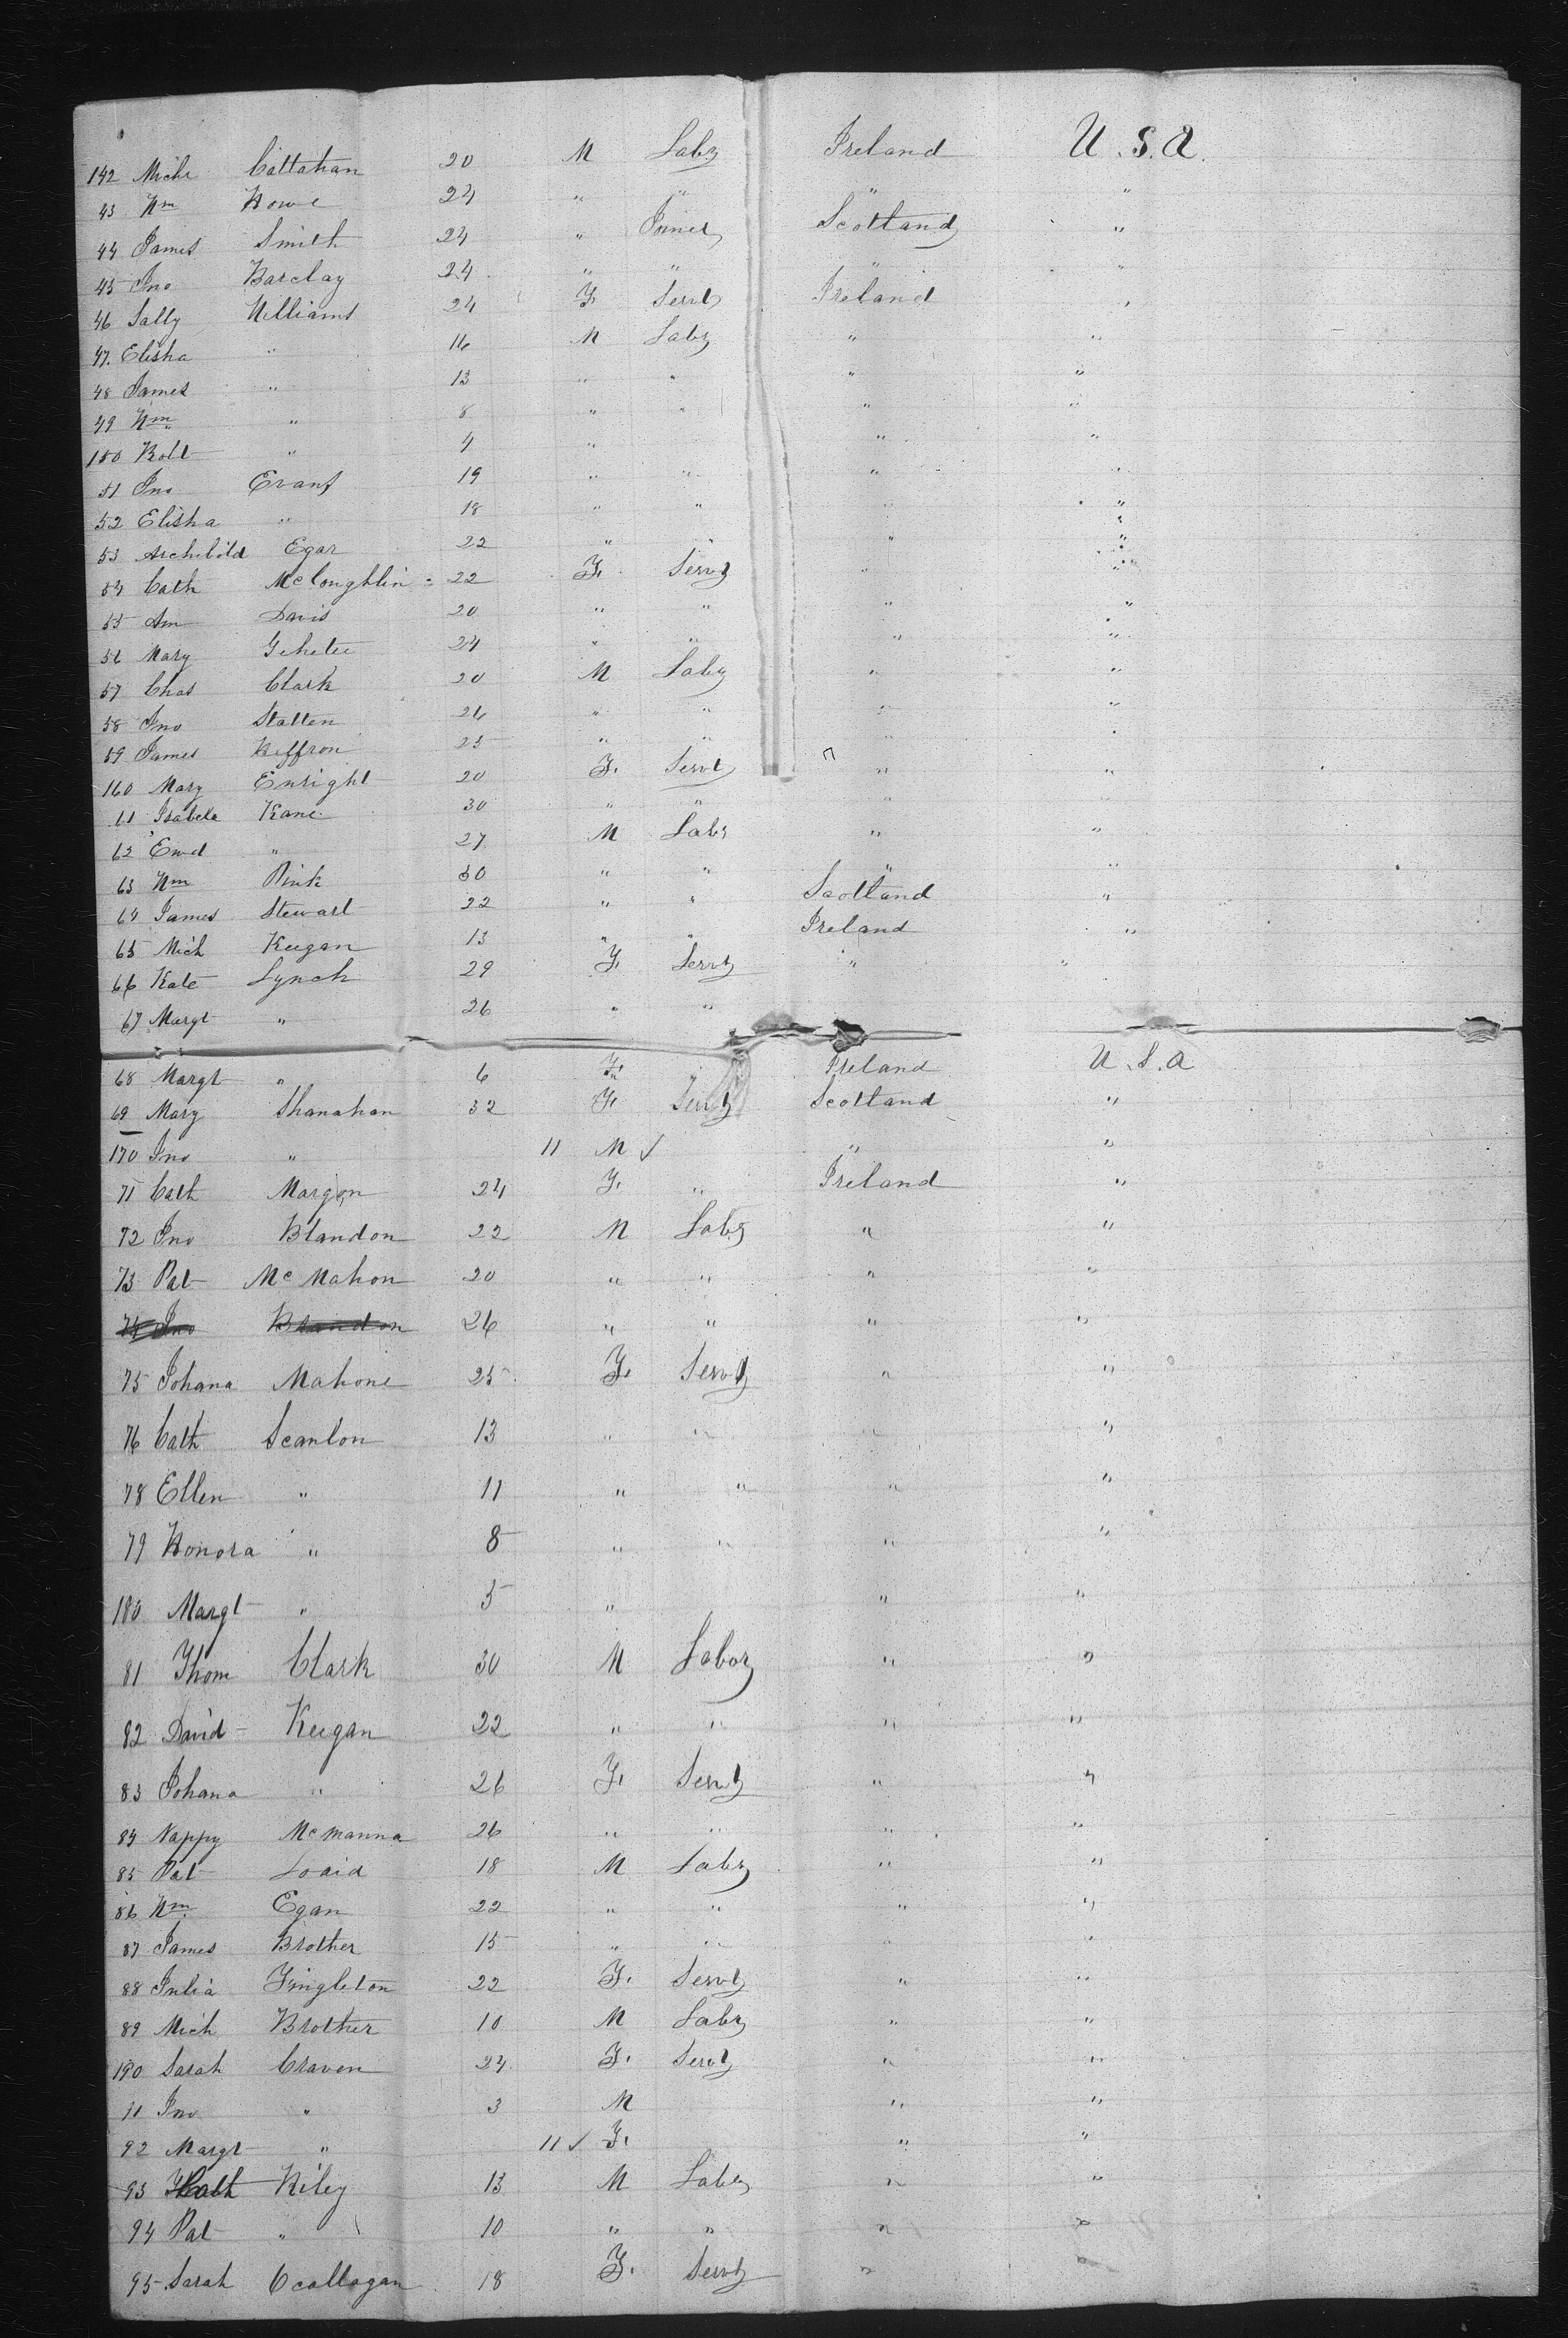 142 Michl Callahan 20 M Labr Ireland U.S.A.
43 Wm Howe 24 " " " "
44 James Smith 24 " Joiner Scotland "
45 Jno Barclay 24 " " " "
46 Sally Williams 24 F. Servt Ireland "
47. Elisha " 16 M Labr " "
48 James " 13 " " " "
49 Wm " 8 " " " "
150 Robt " 4 " " "
51 Jno Evans 19 " " " "
52 Elisha " 18 " " " "
53 Archibold Egar 22 " " " "
54 Cath McLoughlin 22 F. Servt " "
55 Ann Davis 20 " " " "
56 Mary 24 " " " "
57 Chas Clark 20 M Labr " "
58 Jno Statten 26 " " " "
59 James Heffron 25 " " " "
160 Mary Enright 20 F. Servt " "
61 Isabela Kane 30 " " " "
62 Ewd " 27 M Labr " "
63 Wm Pink 30 " " " "
64 James Stewart 22 " " Scotland "
65 Mich Keegan 13 " " Ireland "
66 Kate Lynch 29 F. Servt " "
67 Margt " 26 " "
68 Margt " 6 F. " Ireland U.S.A
69 Mary Shanahan 32 F. Servt Scotland "
170 Jno " 11 M ✓ " "
71 Cath Margon 24 F. " Ireland "
72 Jno Blandon 22 M Labr " "
73 Pat McMahon 20 " " " "
74 Jno Blandon 26 " " " "
75 Johana Mahone 25 F. Servt " "
76 Cath Scanlon 13 " " " "
78 Ellen " 11 " " " "
79 Honora " 8 " " " "
180 Margt " 5 " " "
81 Thom Clark 30 M Labor " "
82 David Keegan 22 " " " "
83 Johana " 26 F. Servt " "
84 Nappy McManna 26 " " " "
85 Pat Loaid 18 M Labr " "
86 Wm Egan 22 " " " "
87 James Brother 15 " " " "
88 Julia Fingleton 22 F. Servt " "
89 Mich Brother 10 M Labr " "
190 Sarah Craven 24 F. Servt " "
91 Jno " 3 M " "
92 Margt " 11 ✓ F. " "
93 Riley 13 M Labr " "
94 Pat " 10 " " " "
95 Sarah Ocallagan 18 F. Servt " "